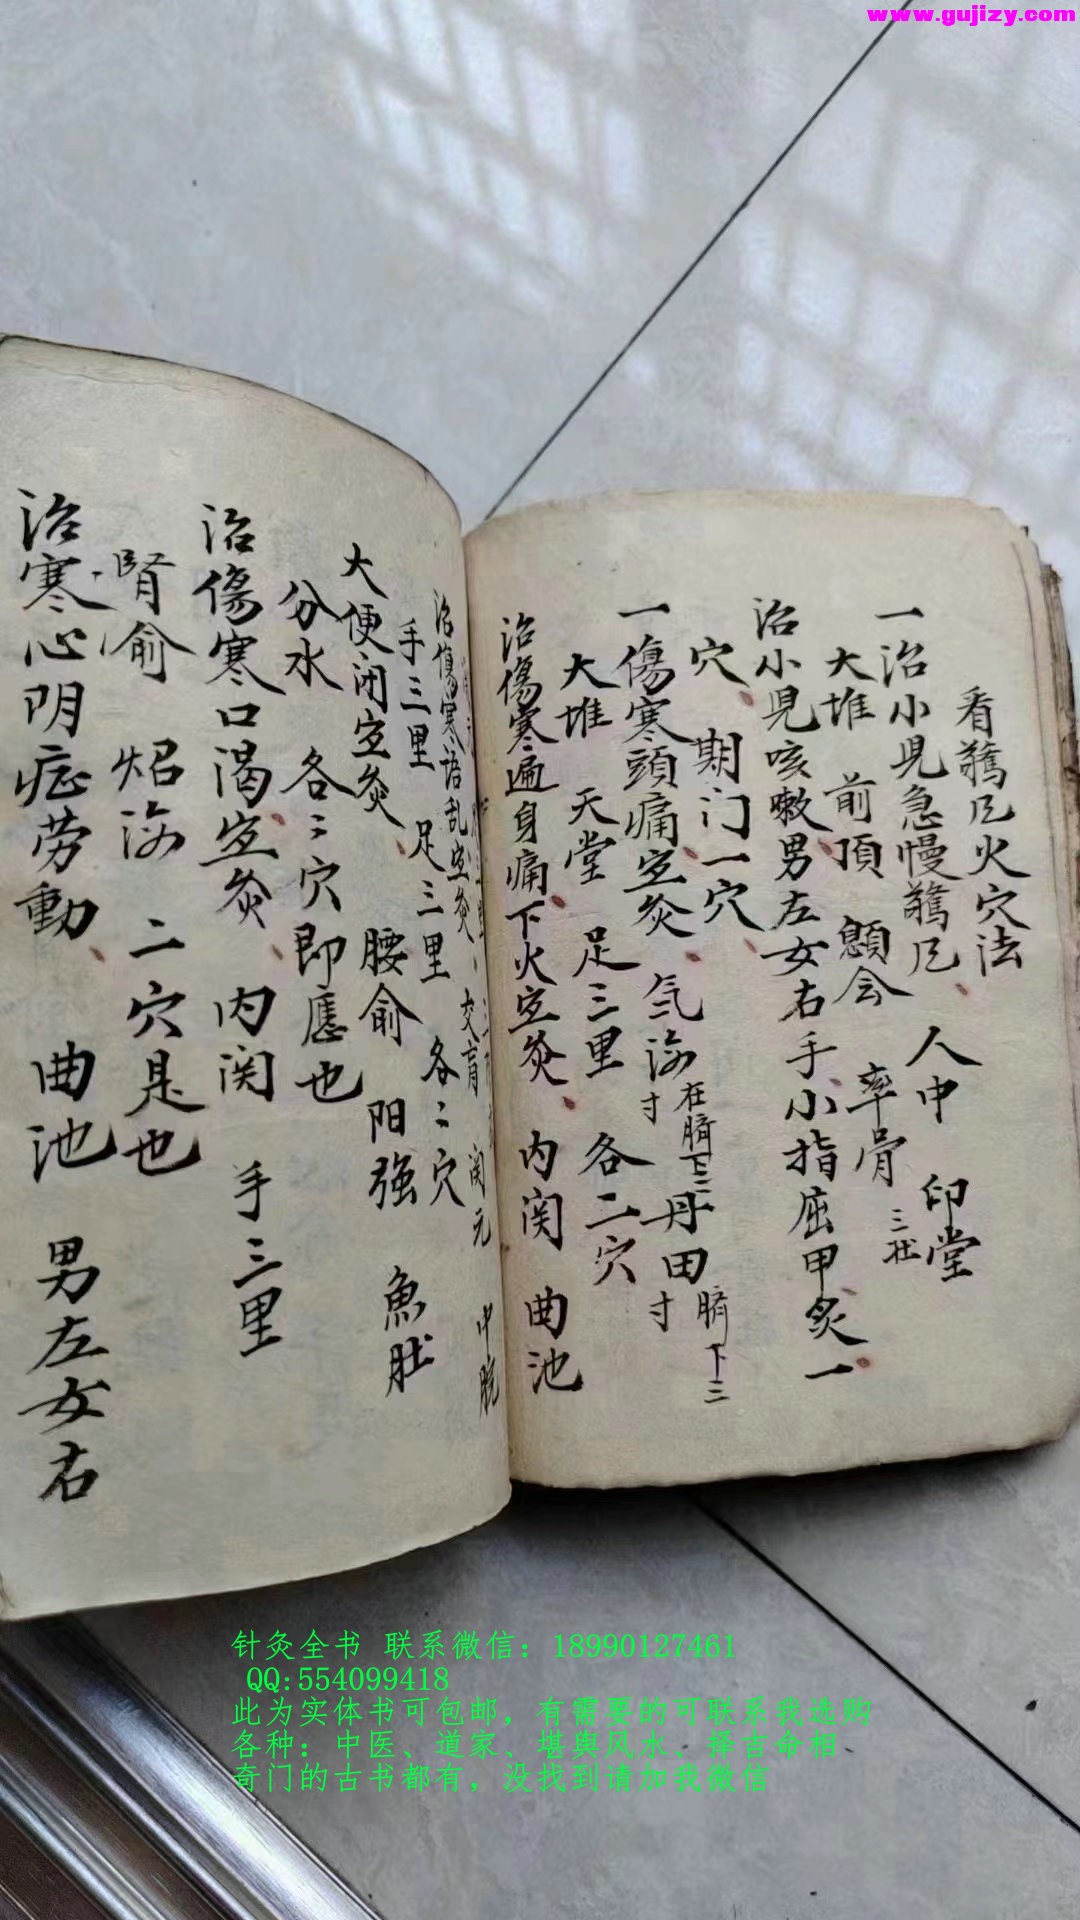 www.gujizy.com
看驚风火穴法
一治小児急慢驚风、人中 印堂
大堆 前頂 顖会 率骨 三壮
治小児咳嗽男左女右手小指屈甲炙一
穴、期门一穴、
一傷寒頭痛宜灸、気海 在臍下二寸 丹田 臍下三寸
大堆 天堂 足三里 各二穴
治傷寒遍身痛下火宜灸、内関 曲池
治傷寒语乱宜灸、
关元 中脘
手三里 足三里 各二穴
大便闭宜灸、腰俞 阳强 魚肚
分水 各二穴即應也
治傷寒口渴宜灸、内関 手三里
腎俞 炤海 二穴是也
治寒心阴症劳動、曲池 男左女右
针灸全书 联系微信：18990127461
QQ:554099418
此为实体书可包邮，有需要的可联系我选购
各种：中医、道家、堪舆风水、择吉命相
奇门的古书都有，没找到请加我微信